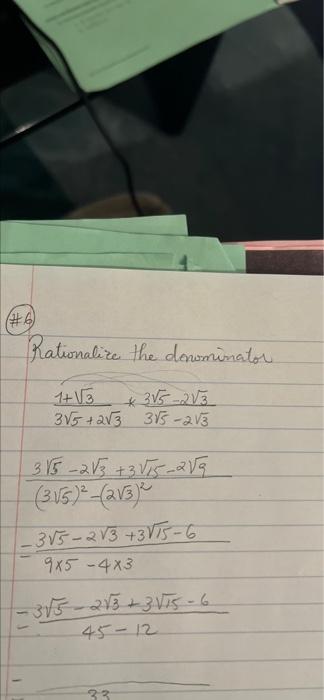 #6
Rationalize the denominator
1+√3 * 3√5 -2√3
3√5 +2√3 3√5 -2√3
3√5 -2√3 +3√15 -2√9
(3√5)² -(2√3)²
= 3√5 - 2√3 +3√15 - 6
9x5 - 4x3
= 3√5 - 2√3 + 3√15 - 6
45 - 12
=
33